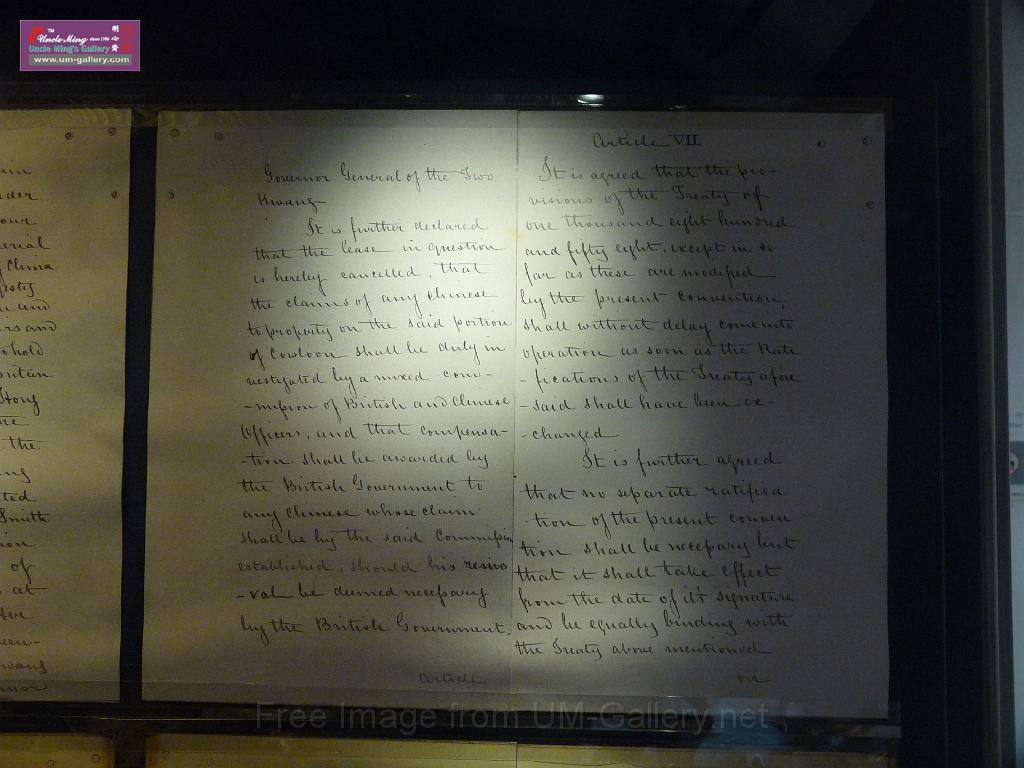 TM
Uncle Ming since 1986
Uncle Ming's Gallery
www.um-gallery.com
our
erial
China
esty
n and
rs and
o hold
ritain
Hong
the
ng
ted
Smith
ion
of
at
ern-
wang
Governor General of the Two
Kwang
It is further declared
that the lease in question
is hereby cancelled, that
the claims of any Chinese
to property on the said portion
of Cowloon shall be duly in
vestigated by a mixed com-
-mission of British and Chinese
Officers, and that compensa-
-tion shall be awarded by
the British Government to
any Chinese whose claim
shall be by the said Commission
established, should his remo
-val be deemed necessary
by the British Government.
Article
Article VII
It is agreed that the pro-
visions of the Treaty of
one thousand eight hundred
and fifty eight, except in so
far as these are modified
by the present convention,
shall without delay come into
operation as soon as the Rati
-fications of the Treaty afore
-said shall have been ex-
-changed
It is further agreed
that no separate ratifica
-tion of the present conven
tion shall be necessary but
that it shall take effect
from the date of its signature
and be equally binding with
the Treaty above mentioned
on
Free Image from UM-Gallery.net